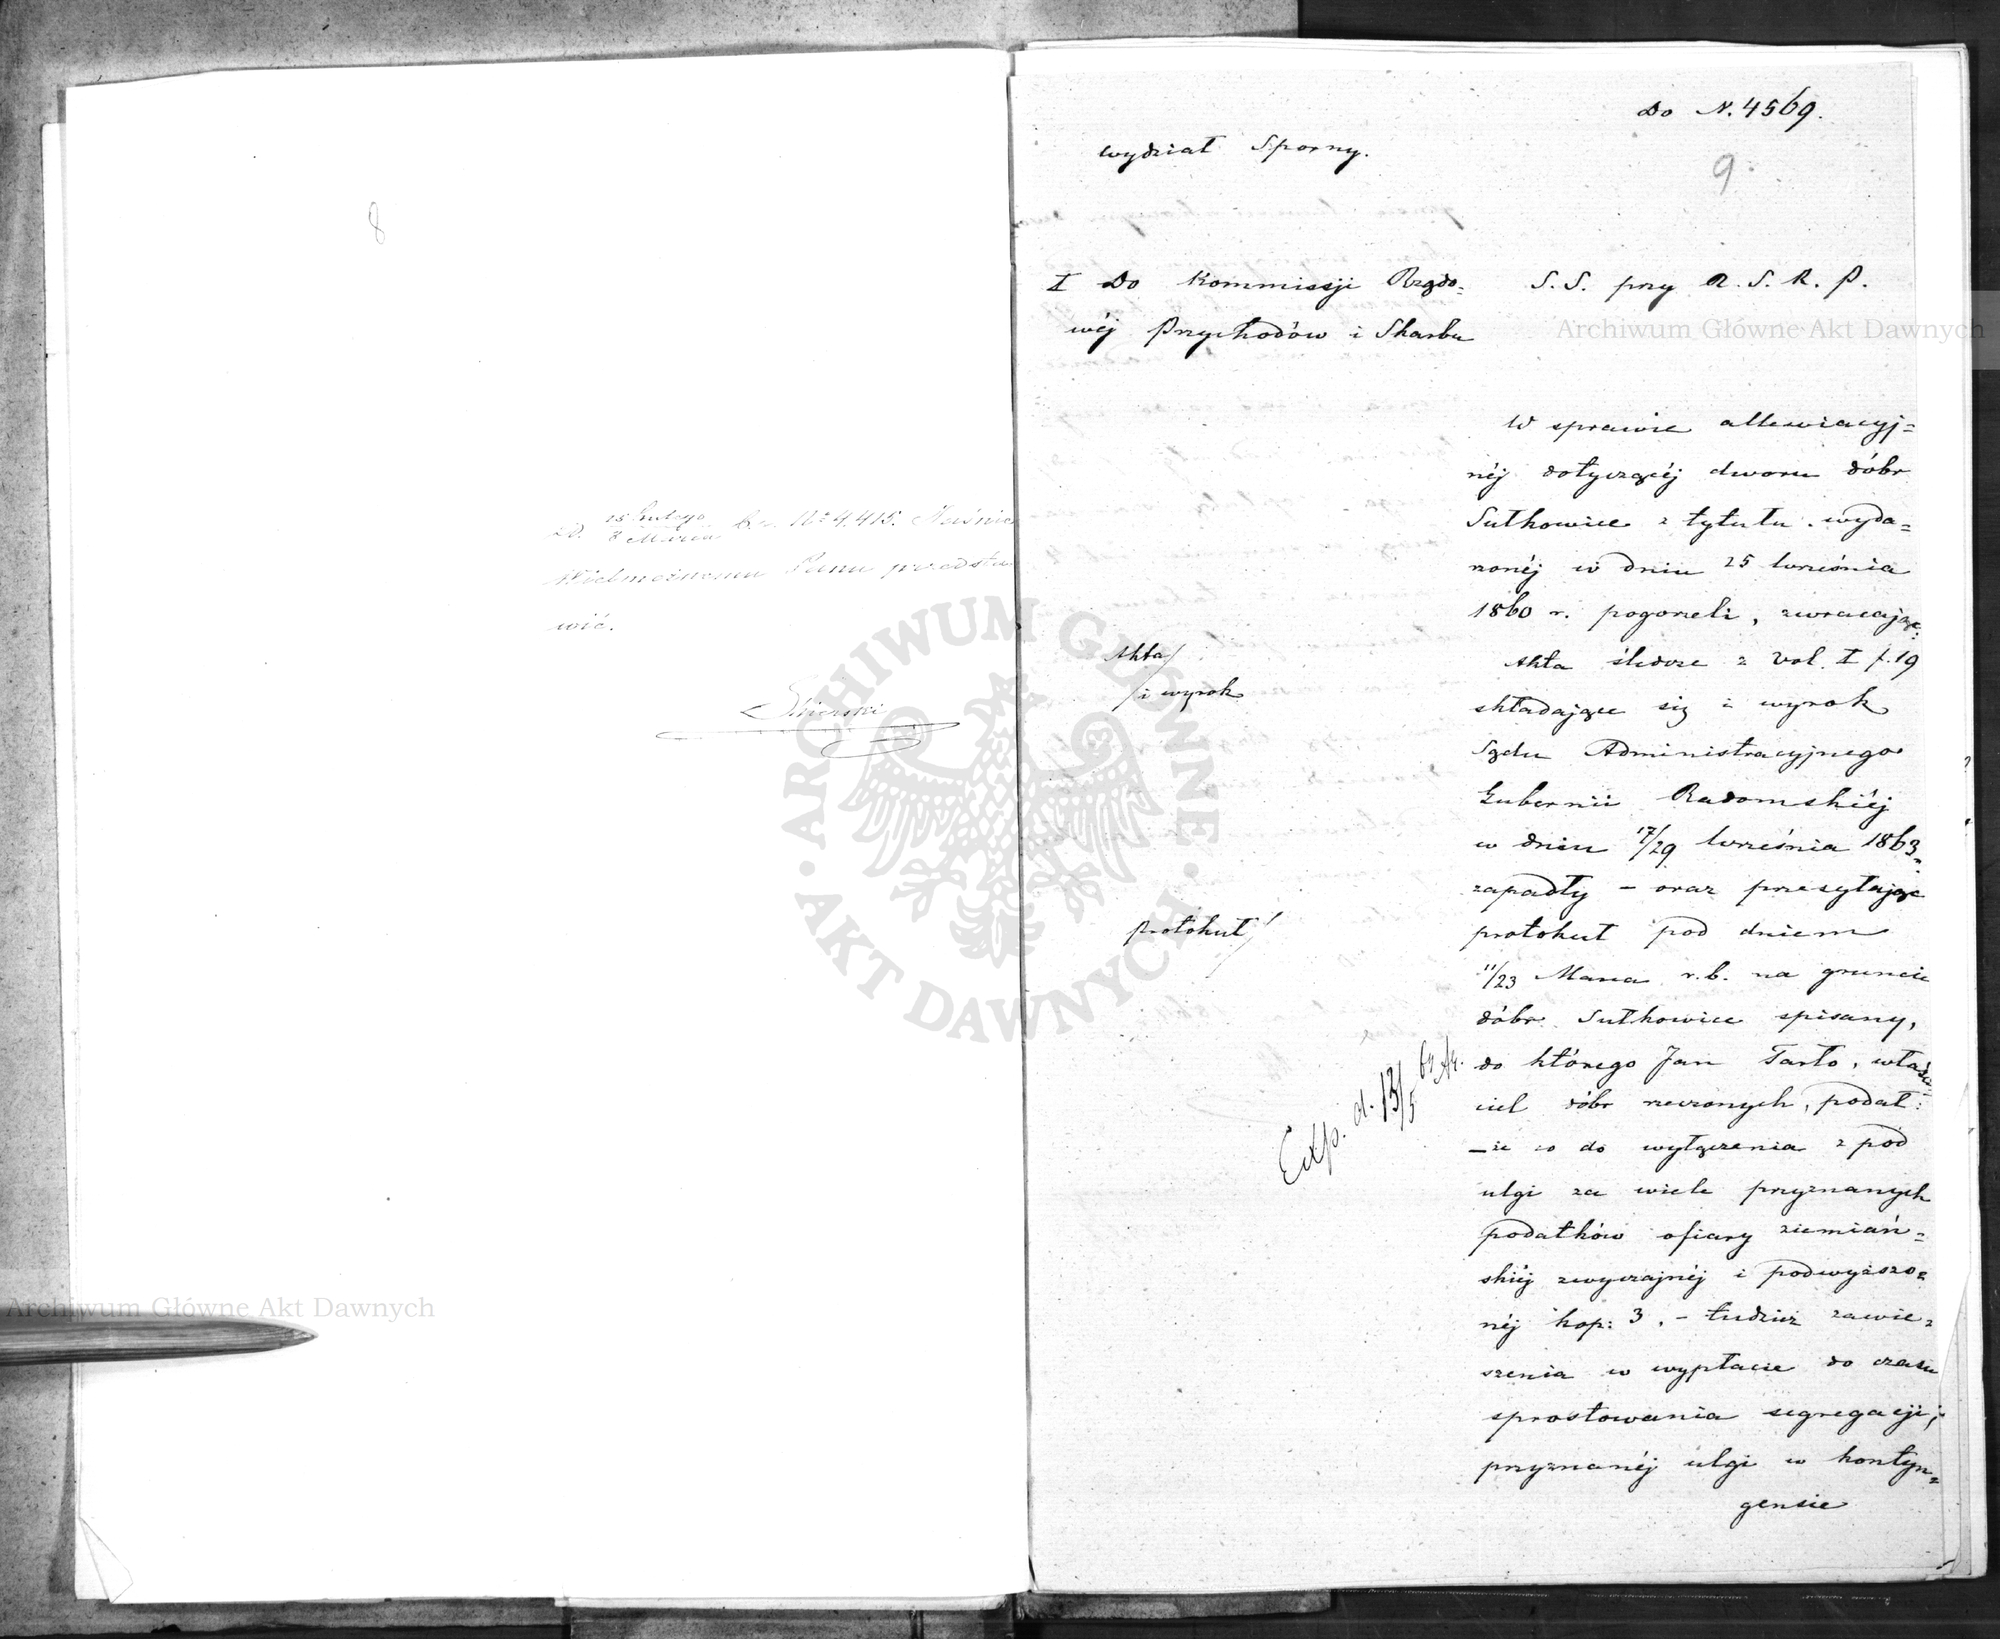 8
z d. 15 Lutego
3 Marca b.r. No 4,415. Jaśnie
Wielmożnemu Panu przedsta
wić.
Archiwum Główne Akt Dawnych
ARCHIWUM GŁÓWNE AKT DAWNYCH
Do N. 4569.
9
Wydział Sporny.
I Do Kommissji Rządo=
wéj Przychodów i Skarbu
S. S. przy R. S. K. P.
Archiwum Główne Akt Dawnych
W sprawie allewiacyj=
néj dotyczącéj dworu dóbr
Sułkowice z tytułu wyda=
rzonéj w dniu 25 Września
1860 r. pogorzeli, zwracając
Akta
i wyrok
akta śledcze z Vol. I f. 19
składające się i wyrok
Sądu Administracyjnego
Gubernii Radomskiéj
w dniu 17/29 Września 1863
zapadły – oraz przesyłając
protokuł
protokuł pod dniem
11/23 Marca r.b. na gruncie
dóbr Sułkowice spisany,
do którego Jan Tarło, właści
ciel dóbr rzeczonych, podał:
Exp. d. 13/5 64
– że co do wyłączenia z pod
ulgi za wiele przyznanych
podatków ofiary ziemiań=
skiéj zwyczajnéj i podwyższo=
néj kop: 3, – tudzież zawie=
szenia w wypłacie do czasu
sprostowania segregacji,
przyznanéj ulgi w kontyn=
gensie